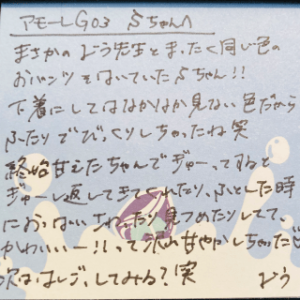 アモーレG03 らちゃんへ
まさかのどう先生とまったく同じ色の
おパンツをはいていたらちゃん!!
下着にしてはなかなか見ない色だから
ふたりでびっくりしちゃったね笑
終始甘えたちゃんでぎゅーってすると
ぎゅーし返してきてくれたり、ふとした時に
見つめたりしてて、
かわいいー!!って沢山甘やかしちゃった
次ははしご、してみる?笑
どう